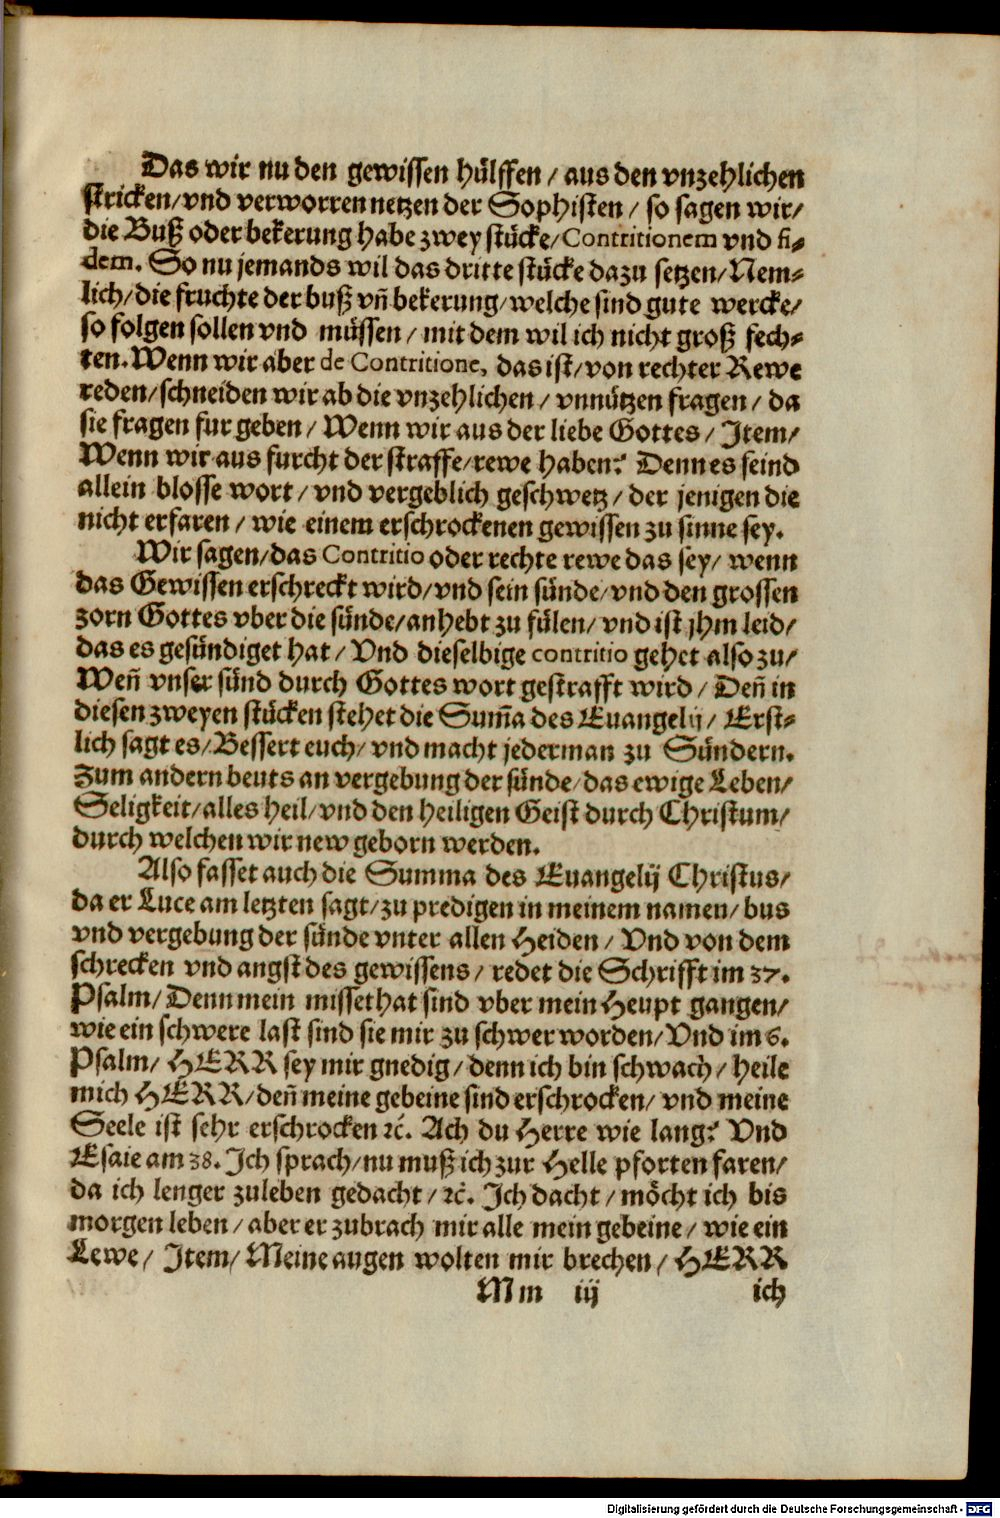 Das wir nu den gewissen hülffen / aus den vnzehlichen
stricken/vnd verworren netzen der Sophisten / so sagen wir/
die Buß oder bekerung habe zwey stücke/Contritionem vnd fi-
dem. So nu jemands wil das dritte stücke dazu setzen/Nem-
lich/die fruchte der buß vñ bekerung/welche sind gute wercke/
so folgen sollen vnd müssen / mit dem wil ich nicht groß fech-
ten. Wenn wir aber de Contritione, das ist/von rechter Rewe
reden/schneiden wir ab die vnzehlichen / vnnützen fragen / da
sie fragen fur geben / Wenn wir aus der liebe Gottes / Item/
Wenn wir aus furcht der straffe/rewe haben? Denn es seind
allein blosse wort / vnd vergeblich geschwetz / der jenigen die
nicht erfaren / wie einem erschrockenen gewissen zu sinne sey.
Wir sagen/das Contritio oder rechte rewe das sey/ wenn
das Gewissen erschreckt wird/vnd sein sünde/vnd den grossen
zorn Gottes vber die sünde/anhebt zu fülen/ vnd ist jhm leid/
das es gesündiget hat / Vnd dieselbige contritio gehet also zu/
Weñ vnser sünd durch Gottes wort gestrafft wird / Deñ in
diesen zweyen stücken stehet die Sum̃a des Euangelij / Erst-
lich sagt es/Bessert euch/ vnd macht jederman zu Sündern.
Zum andern beuts an vergebung der sünde/das ewige Leben/
Seligkeit/alles heil/vnd den heiligen Geist durch Christum/
durch welchen wir new geborn werden.
Also fasset auch die Summa des Euangelij Christus/
da er Luce am letzten sagt/zu predigen in meinem namen/ bus
vnd vergebung der sünde vnter allen Heiden / Vnd von dem
schrecken vnd angst des gewissens / redet die Schrifft im 37.
Psalm/ Denn mein missethat sind vber mein Heupt gangen/
wie ein schwere last sind sie mir zu schwer worden/ Vnd im 6.
Psalm/ HERR sey mir gnedig / denn ich bin schwach / heile
mich HERR/deñ meine gebeine sind erschrocken/ vnd meine
Seele ist sehr erschrocken ꝛc̃. Ach du Herre wie lang? Vnd
Esaie am 38. Ich sprach/nu muß ich zur Helle pforten faren/
da ich lenger zuleben gedacht / ꝛc̃. Ich dacht / möcht ich bis
morgen leben / aber er zubrach mir alle mein gebeine / wie ein
Lewe / Item/ Meine augen wolten mir brechen / HERR
Mm iij ich
Digitalisierung gefördert durch die Deutsche Forschungsgemeinschaft - DFG